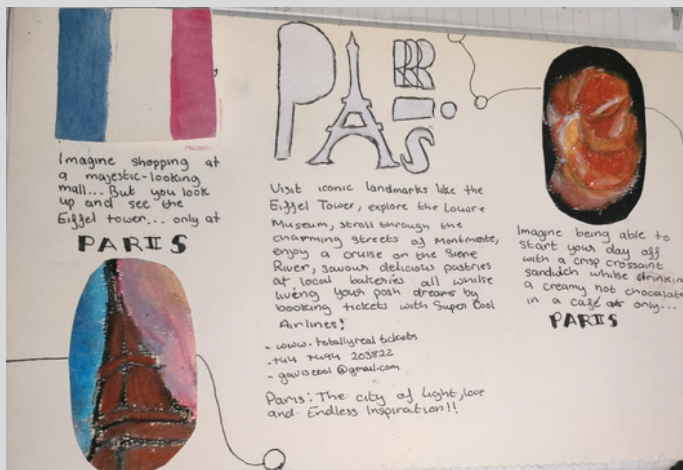 Imagine shopping at
a majestic-looking
mall... But you look
up and see the
Eiffel tower... only at
PARIS
PARIS
Visit iconic landmarks like the
Eiffel Tower, explore the Louvre
Museum, stroll through the
charming streets of Montmonte,
enjoy a cruise on the Siene
River, savour delicious pastries
at local bakeries all whilse
living your posh dreams by
booking tickets with Super Cool
Airlines!
- www.totallyreal tickets
- +44 7494 203822
- gavscool @gmail.com
Paris: The city of Light, love
and Endless Inspiration!!
Imagine being able to
start your day off
with a crisp crossaint
sandwich whilse drinking
a creamy hot chocolate
in a café only...
PARIS